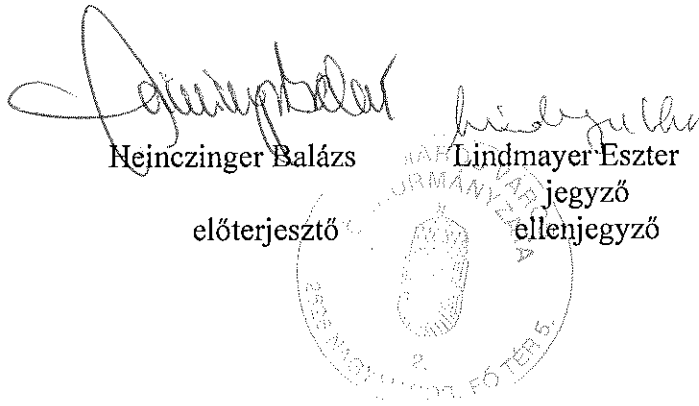 Heinczinger Balázs
előterjesztő
Lindmayer Eszter
jegyző
ellenjegyző
2. FŐ TÉR 5.